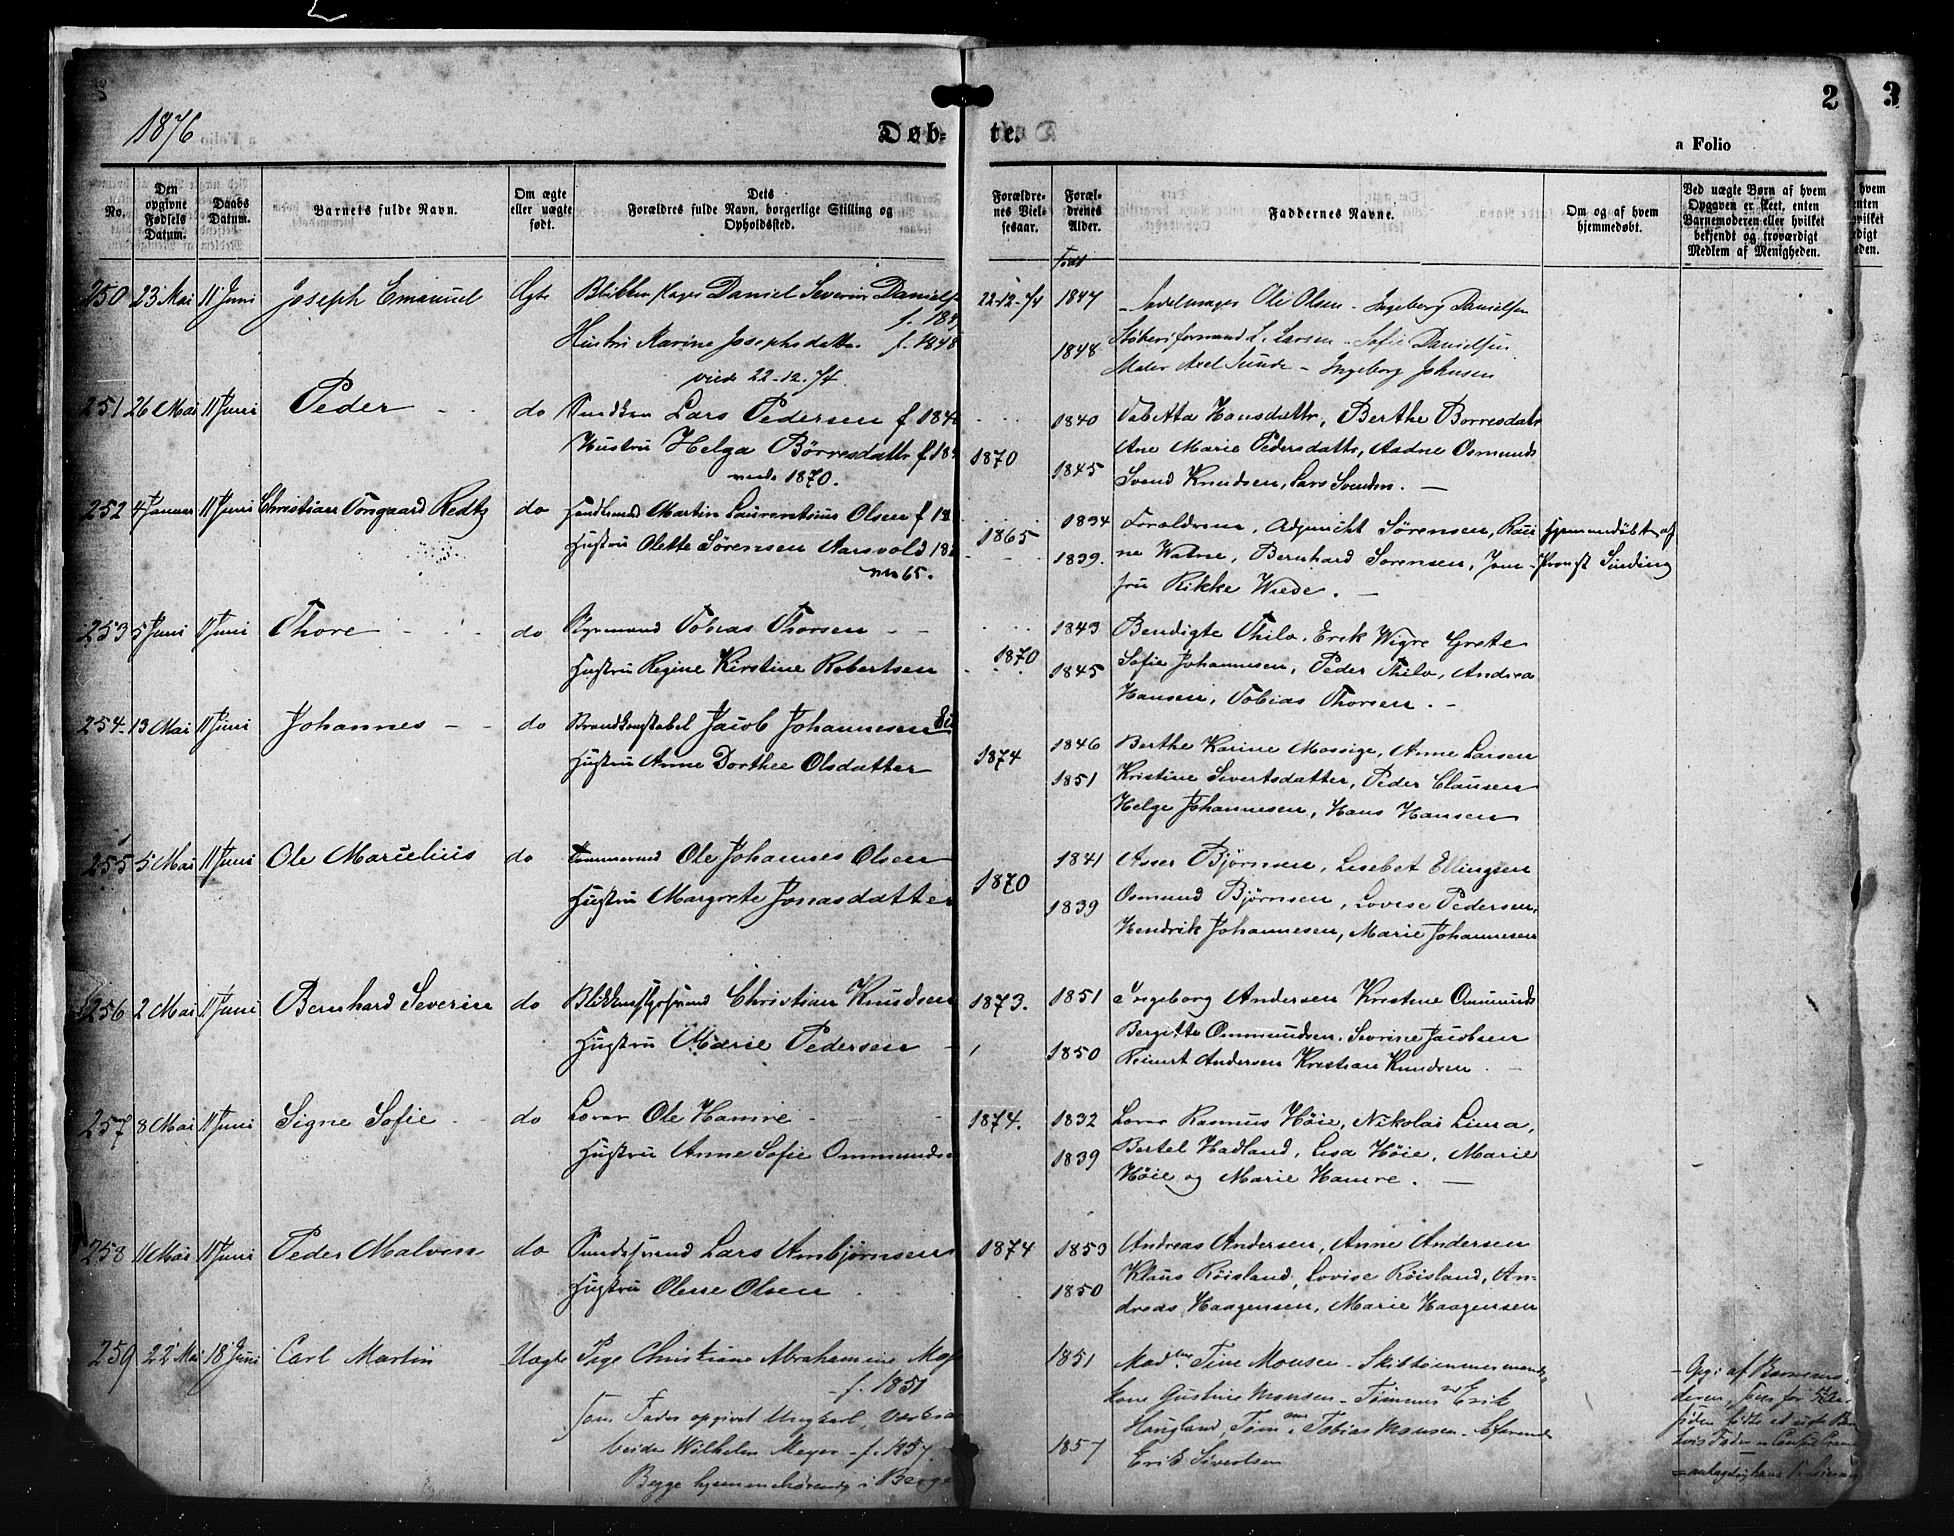 1876
Døb- te.
2
3
a Folio
No.
Den opgivne Fødsels Datum.
Daabs Datum.
Barnets fulde Navn.
Om ægte eller uægte født.
Dets Forældres fulde Navn, borgerlige Stilling og Opholdssted.
Forældrenes Vielsesaar.
Forældrenes Alder.
Faddernes Navne.
Om og af hvem hjemmedøbt.
Ved uægte Børn af hvem Opgaven er skeet, enten Barnemoderen eller hvilket bekjendt og troværdigt Medlem af Menigheden.
født
250 23 Mai 11 Juni Joseph Emanuel Ægte Daniel Severin
Hustru Karine Josephsdatter f. 1848
viede 22-12-74.
22-12-74 1847 Ole Olsen - Ingeborg Danielsen
1848 L. Larsen - Sofie Danielsen
Maler Axel Sunde - Ingeborg Johnsen
251 26 Mai 11 Juni Peder do Lars Pedersen
Hustru Helga Børresdattr
viede 1870.
1840 Tabitta Hansdattr, Berthe Børresdatr
1870 Ane Marie Pedersdattr, Aadne Osmunds
1845 Svend Knudsen, Lars Svendsn.
252 4 Januar 11 Juni Christian Tongaard Redtz do Martin Laurentsius Olsen
Hustru Olette Sørensen Aarsvold
65.
1865 1834 Forældrene, Adjunckt Sørensen, Rai-
1839. ne Watne, Bernhard Sørensen, Jom-
fru Rikke Wiede.
Hjemmedøbt af
Provst Sinding
253 5 Juni 11 Juni Thore do Styrmand Tobias Thorsen
Hustru Regine Kirstine Robertsen
1870 1843 Bendigte Thilo, Erik Wigre Grete
1845 Sofie Johannesen, Peder Thilo, Andrea
Hansen, Tobias Thorsen.
254 13 Mai 11 Juni Johannes do Brandkonstabel Jacob Johannesen
Hustru Anne Dorthee Olsdatter
1874 1846 Berthe Karine Mossige, Anne Larsen
1851 Kristine Sivertsdatter, Peder Clausen
Helge Johannesen, Hans Hansen
255 5 Mai 11 Juni Ole Marcelius do Tømmermd Ole Johannes Olsen
Hustru Margrete Jonasdatter
1870 1841 Asser Bjørnsen, Lisebet Ellingsen
1839 Osmund Bjørnsen, Lovise Pedersen,
Hendrik Johannesen, Marie Johannesen
256 2 Mai 11 Juni Bernhard Severin do Christian Knudsen
Hustru Marie Pedersen
1873. 1851 Ingeborg Andersen Kristine Ommunds
Bergitte Ommundsen, Sevrine Jacobsen
1850 Reinert Andersen Kristian Knudsen
257 8 Mai 11 Juni Signe Sofie do Lærer Ole Hamre
Hustru Anne Sofie Ommundsen
1874. 1832 Lærer Rasmus Høie, Nikolai Lima,
1839 Bertel Hadland, Lisa Høie, Marie
Høie og Marie Hamre.
258 11 Mai 11 Juni Peder Malvin do Lars Ambjørnsen
Hustru Olene Olsen
1874 1853 Andreas Andersen, Anne Andersen
Klaus Røisland, Lovise Røisland, An-
1850 dreas Haagensen, Marie Haagensen
259 22 Mai 18 Juni Carl Martin Uægte Pige Christiane Abrahamine
f. 1851
som Fader opgivet Ungkarl,
Wilhelm Meyer f. 1857.
Begge hjemmehørende i Bergen
1851 Tine Monsen - Skibtømmermands
kone Gustine Monsen - Erik
Haugland, Tobias Monsen
1857 Erik Sivertsen
Opg: af Barnemo-
deren,